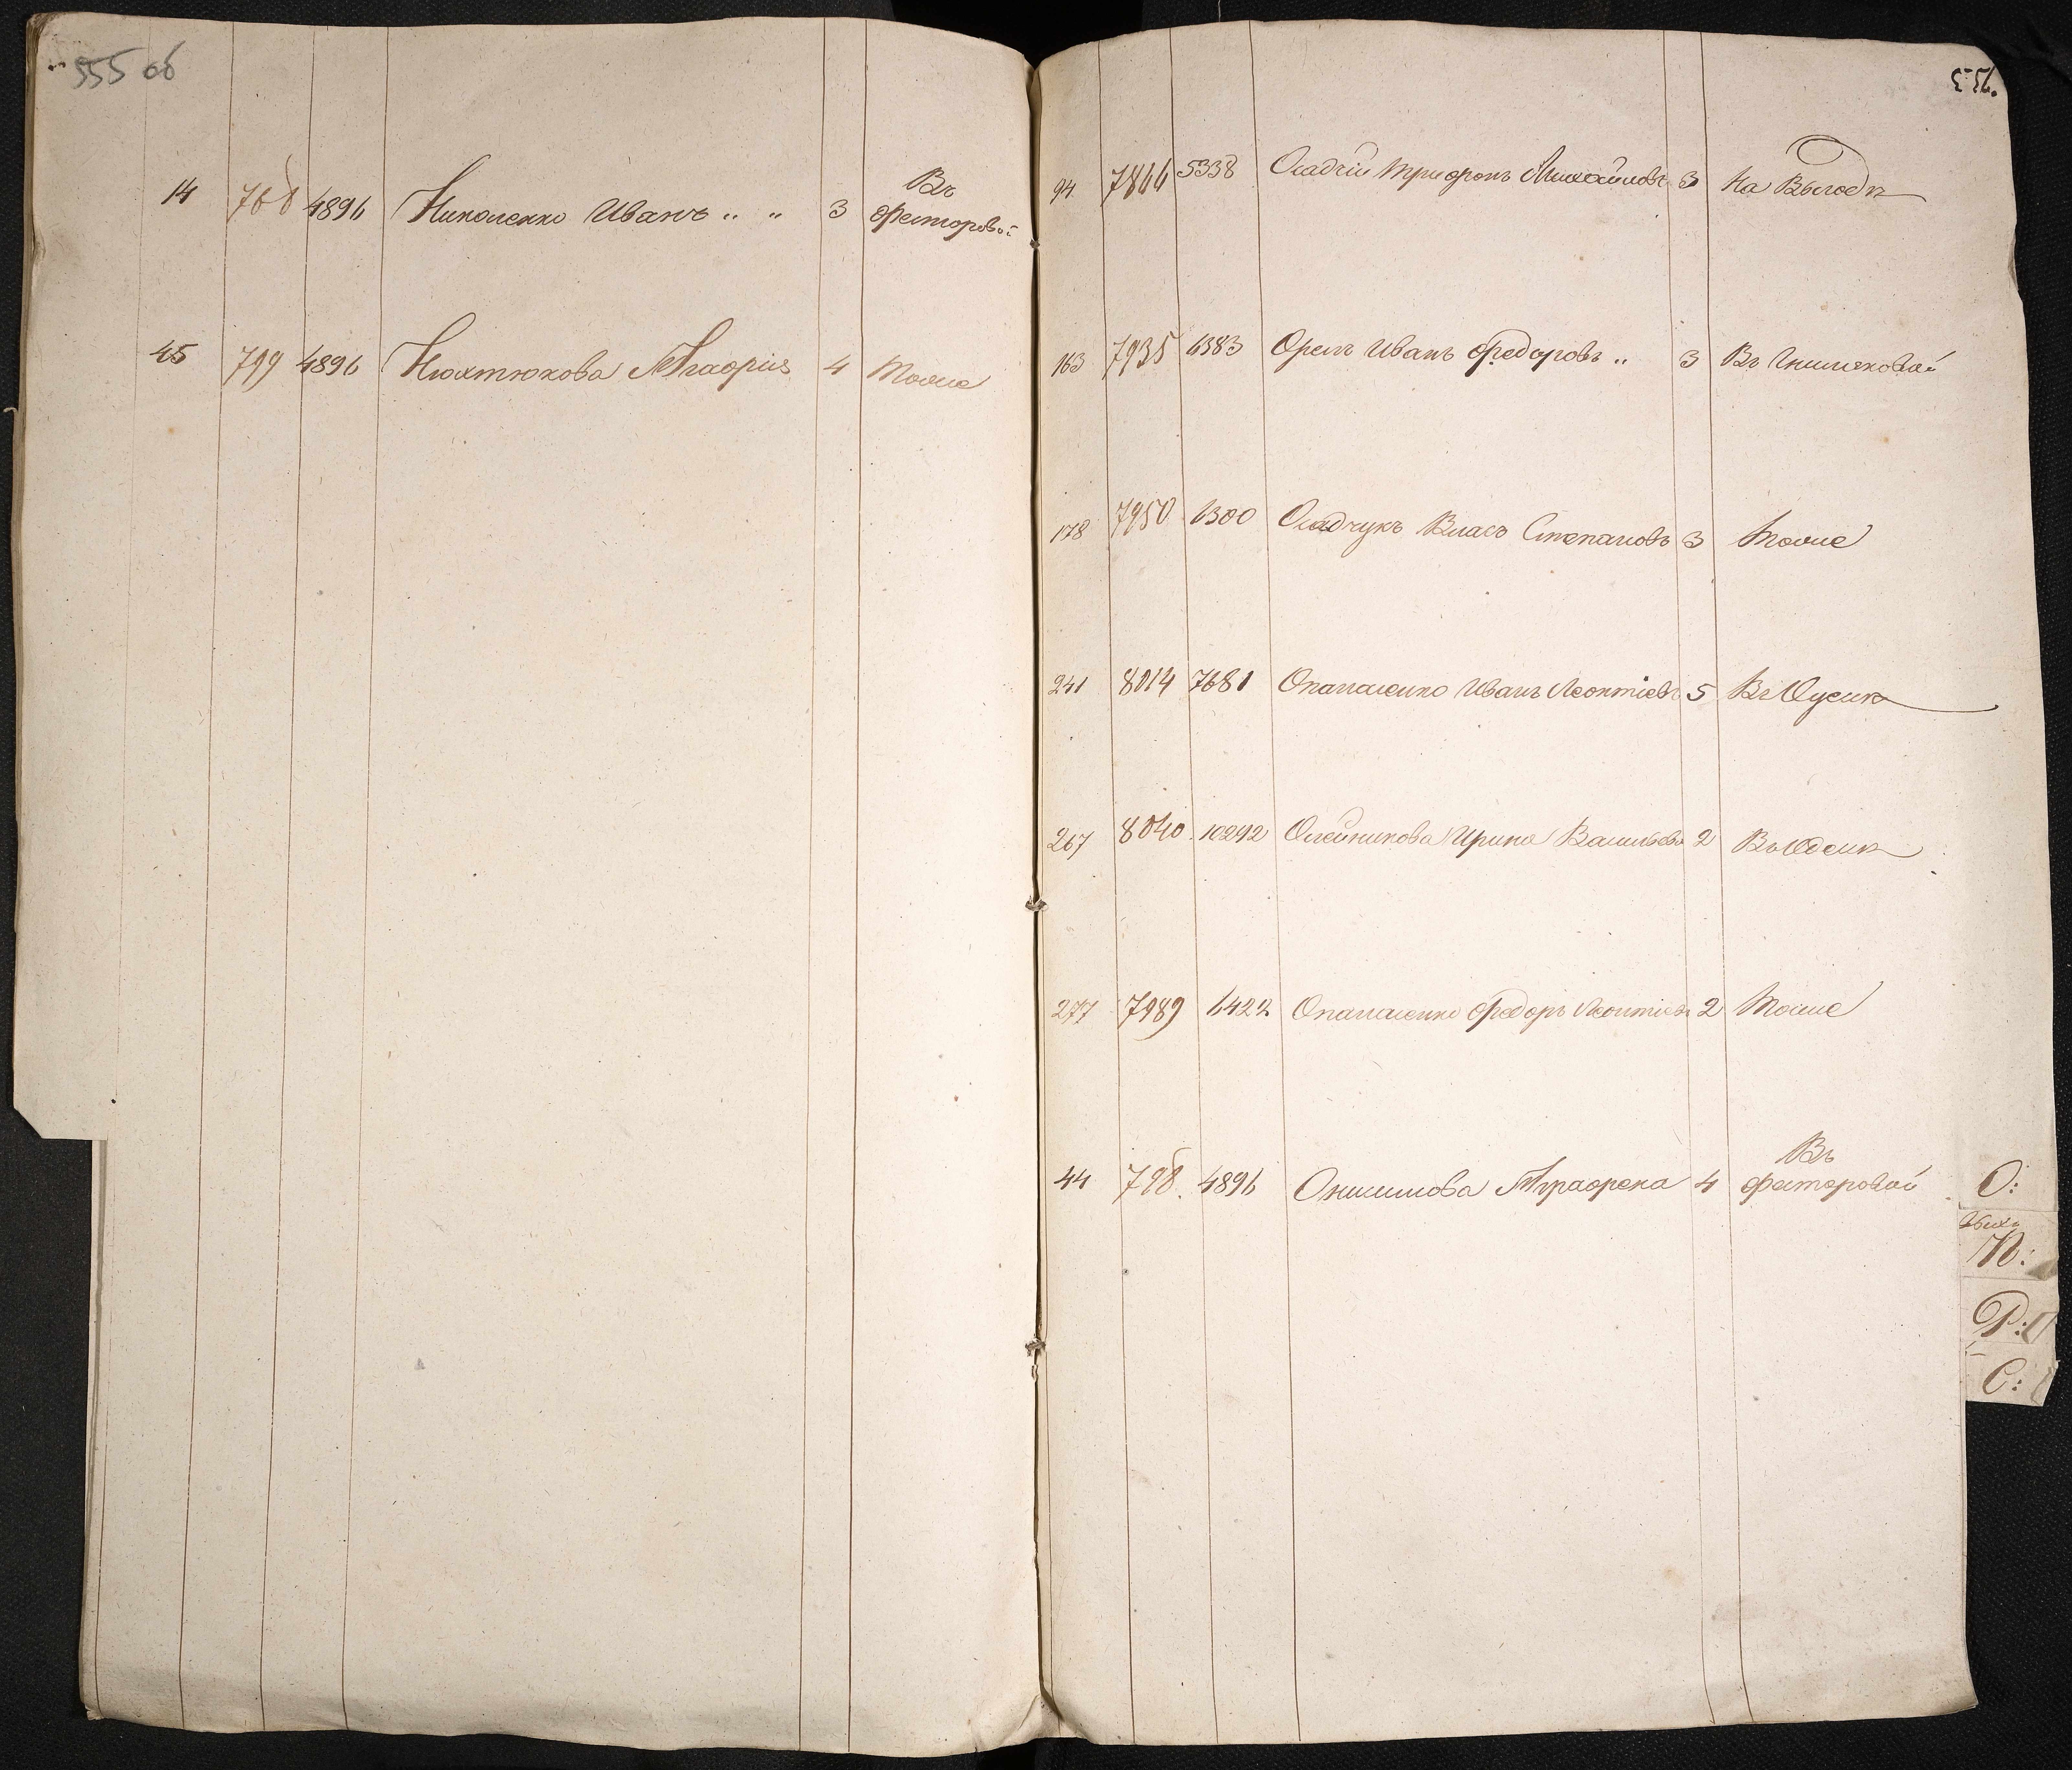 555 об
14 768 4896 Николенко Иванъ „ „ 3 Въ
Фесторово:
45 799 4896 Нюхтюкова 4 тоже
94 7866 5338 Осадчій Трифонъ Михайловъ 3 На Выгодѣ
163 7935 6383 Орелъ Иванъ Федоровъ „ 3 Въ
178 7950 6300 Осадчукъ Власъ Степановъ 3 тоже
241 8014 7681 Опанасенко Иванъ Леонтіевъ 5 Въ
267 8040 10292 Олейникова Ирина Васильева 2 Въ Одесѣ
277 7989 6422 Опанасенко Федоръ Леонтіевъ 2 тоже
44 798. 4896 Онисимова 4 Въ
Фесторовой
О:
П:
Р:
С: